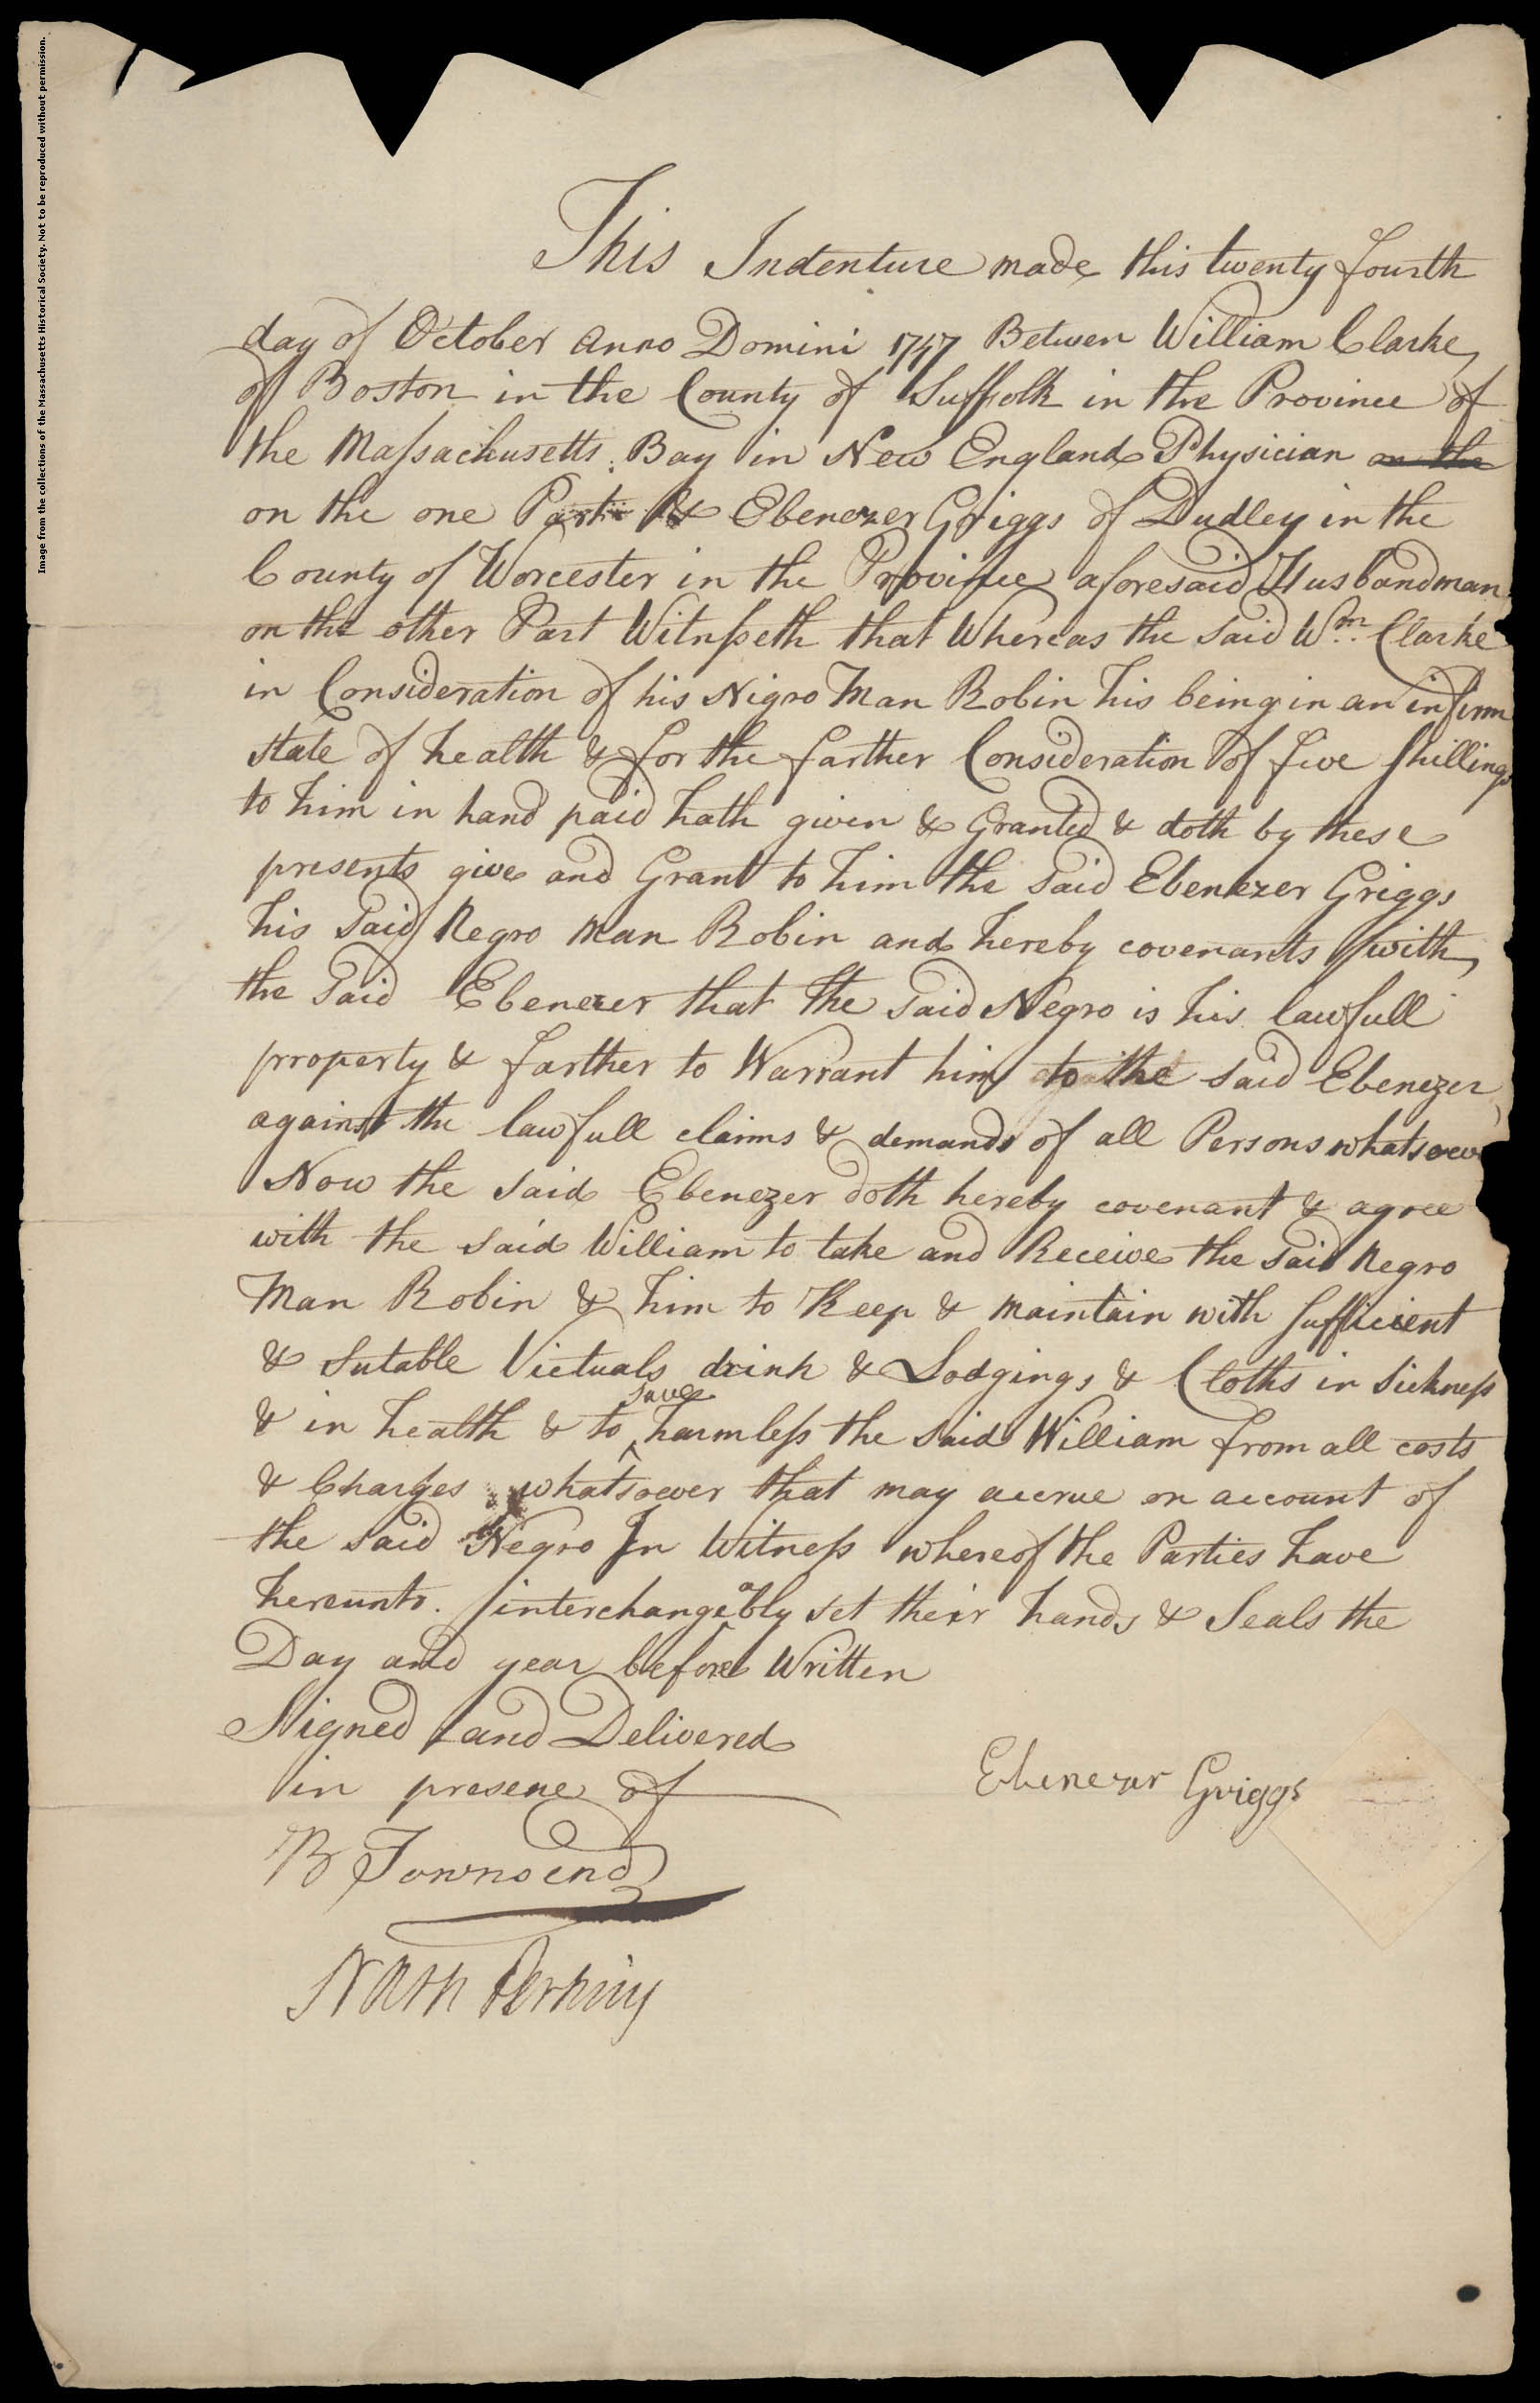 Image from the collections of the Massachusetts Historical Society. Not to be reproduced without permission.
This Indenture made this twenty fourth
day of October Anno Domini 1747 Betwen William Clarke
of Boston in the County of Suffolk in the Province of
the Massachusetts Bay in New England Physician on the
on the one Part & Ebenezer Griggs of Dudley in the
County of Worcester in the Province aforesaid Husbandman
on the other Part Witnesseth that Whereas the said Wm. Clarke
in Consideration of his Nigro Man Robin his being in an infirm
state of health & for the farther Consideration of five shillings
to him in hand paid hath given & Granted & doth by these
presents give and Grant to him the said Ebenezer Griggs
his said Negro Man Robin and hereby covenants with
the said Ebenezer that the said Negro is his lawfull
property & farther to Warrant him to the said Ebenezer
against the lawfull claims & demands of all Persons whatsoever
Now the said Ebenezer doth hereby covenant & agree
with the said William to take and Receive the said Negro
Man Robin & him to Keep & maintain with sufficient
& Sutable Victuals drink & Lodgings & Cloths in Sickness
& in health & to save harmless the said William from all costs
& Charges whatsoever that may accrue on account of
the said Negro In Witness whereof the Parties have
hereunto interchangeably set their hands & Seals the
Day and year before Written
Signed and Delivered
in presene of
Ebenezer Griggs
B Townsend
Nath Perkins